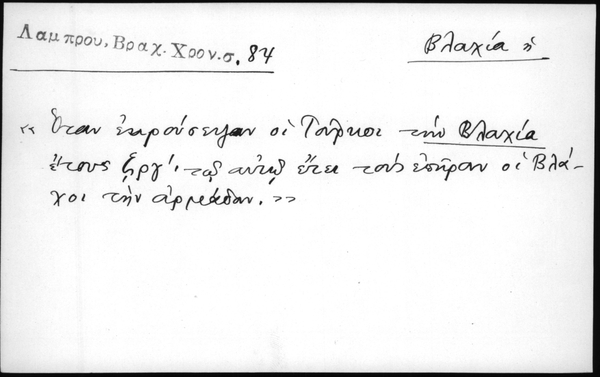 Λαμπρου, Βραχ. Χρον. σ. 84
Βλαχία ἡ
« Ὅταν ἐκρούσεψαν οἱ Τοῦρκοι τὴν Βλαχία
ἔτους ͵ϛργ', τῷ αὐτῷ ἔτει τοὺς ἐπῆραν οἱ Βλά-
χοι τὴν ἀρμάδαν. »